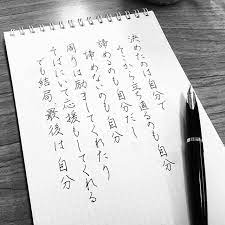 決めたのは自分で
そこから立ち直るのも自分
諦めるのも自分だし
諦めないのも自分
周りは励ましてくれたり
そばにいて応援もしてくれる
でも結局、最後は自分